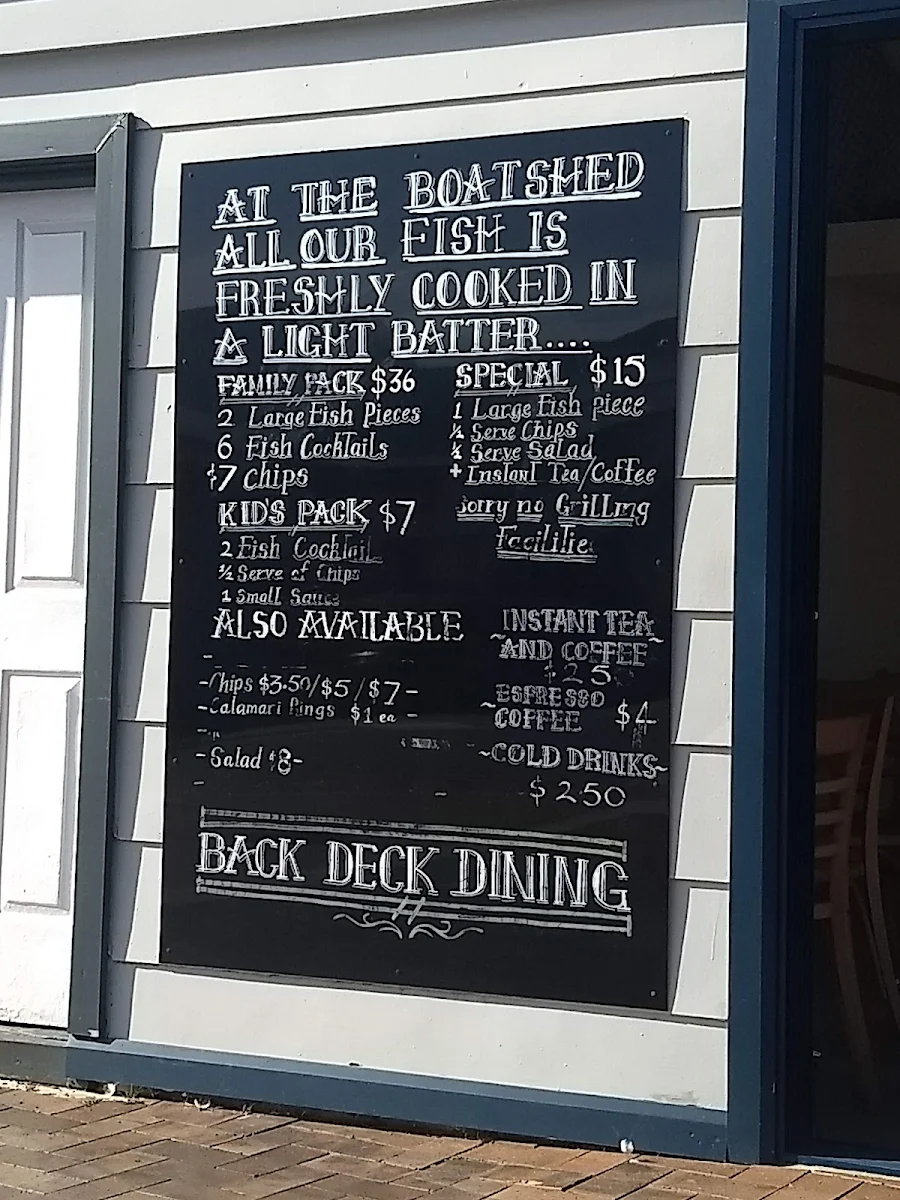 AT THE BOATSHED
ALL OUR FISH IS
FRESHLY COOKED IN
A LIGHT BATTER....
FAMILY PACK $36
2 Large Fish Pieces
6 Fish Cocktails
$7 Chips
KID'S PACK $7
2 Fish Cocktail
½ Serve of Chips
1 Small Sauce
SPECIAL $15
1 Large Fish piece
½ Serve Chips
½ Serve Salad
+ Instant Tea/Coffee
Sorry no Grilling
Facilitie
ALSO AVAILABLE
-Chips $3.50/$5/$7-
-Calamari Rings $1 ea-
-Salad $8-
INSTANT TEA
~AND COFFEE~
~ESPRESSO
COFFEE $4
~COLD DRINKS~
$250
BACK DECK DINING